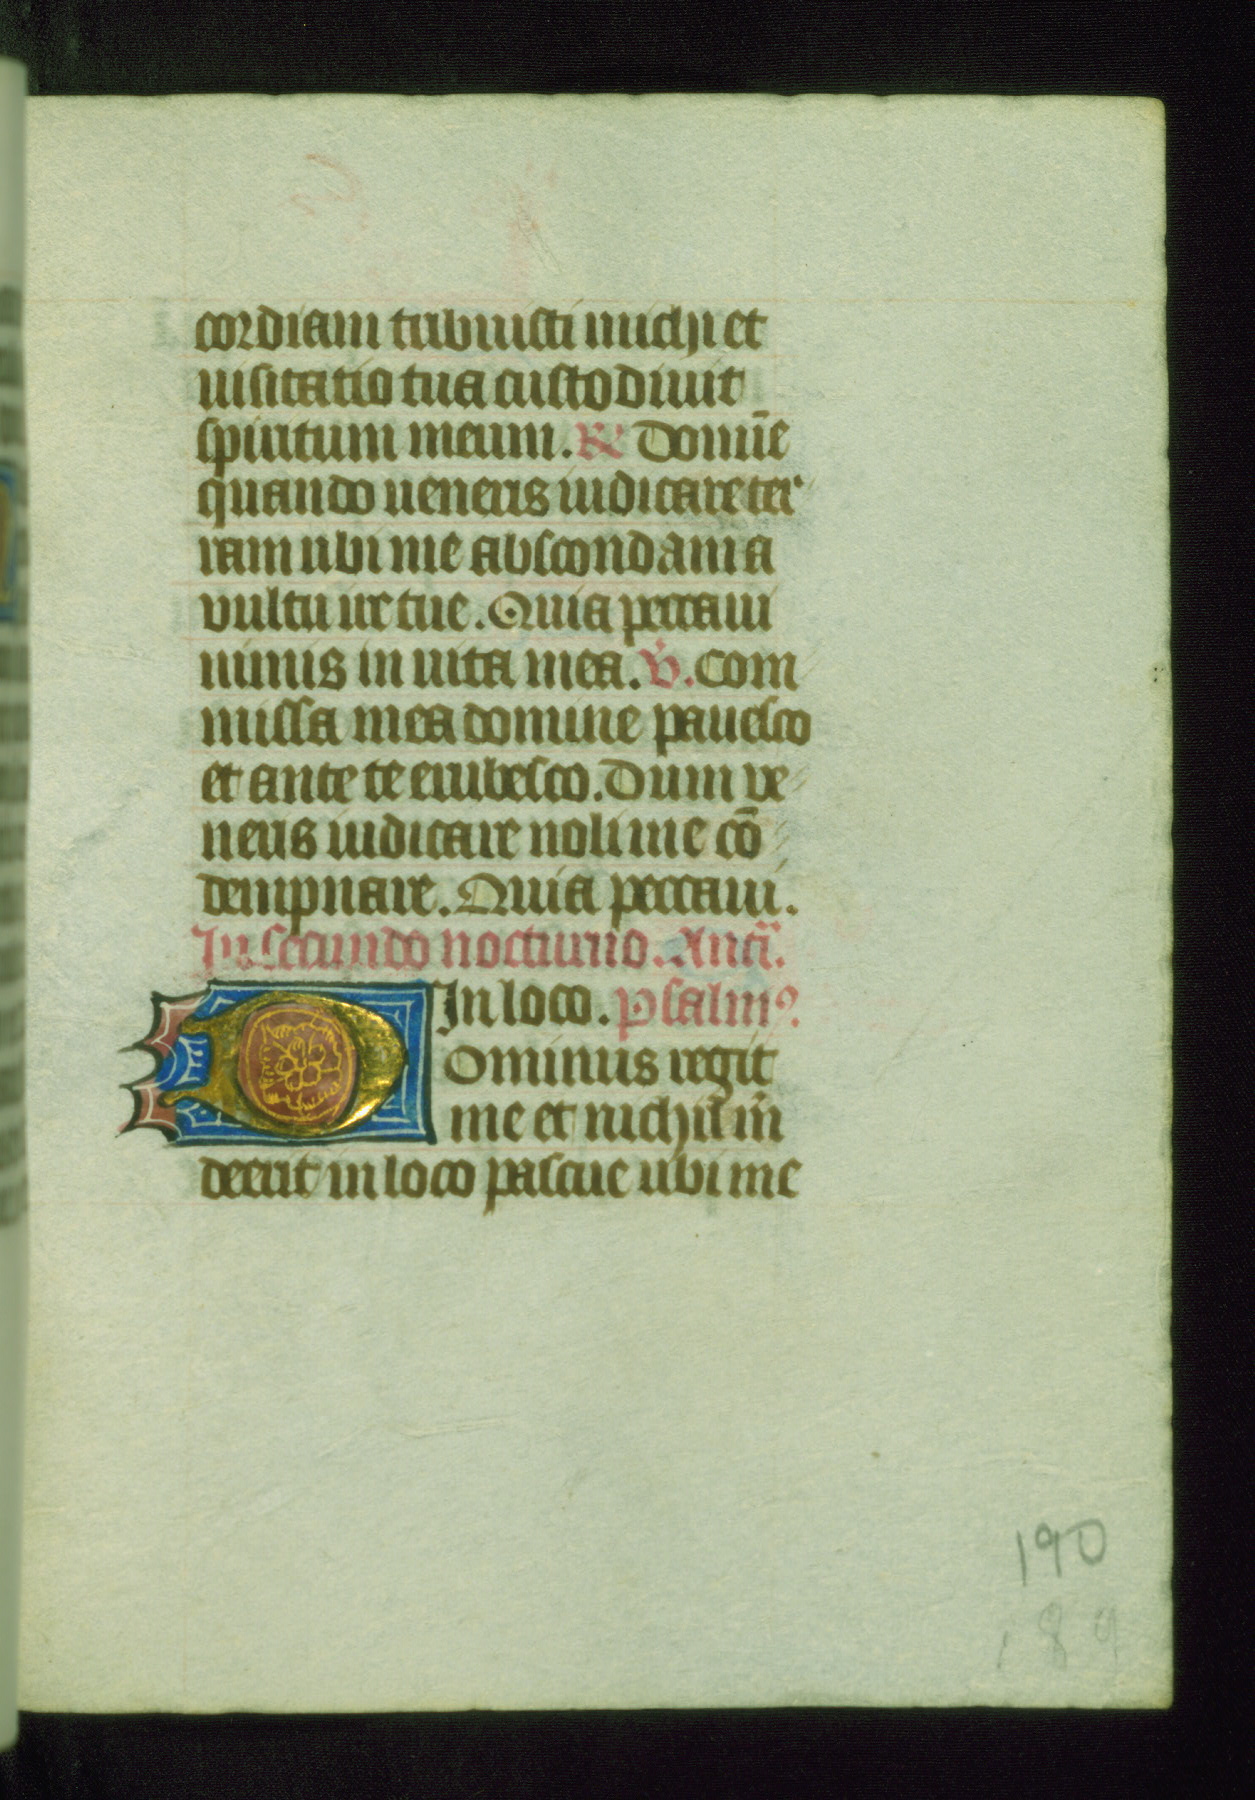 cordiam tribuisti michi et
uisitatio tua custodiuit
spiritum meum. R Domīe
quando ueneris iudicare ter
ram ubi me abscondam a
vultu ire tue. Quia peccaui
nimis in uita mea. V. Com
missa mea domine pauesco
et ante te erubesco. Dum ve
neris iudicare noli me cō
dempnare. Quia peccaui.
In secundo nocturno. Antā.
In loco. Psalm9.
Dominus regit
me et nichil m̄
deerit in loco pascue ubi me
190
189